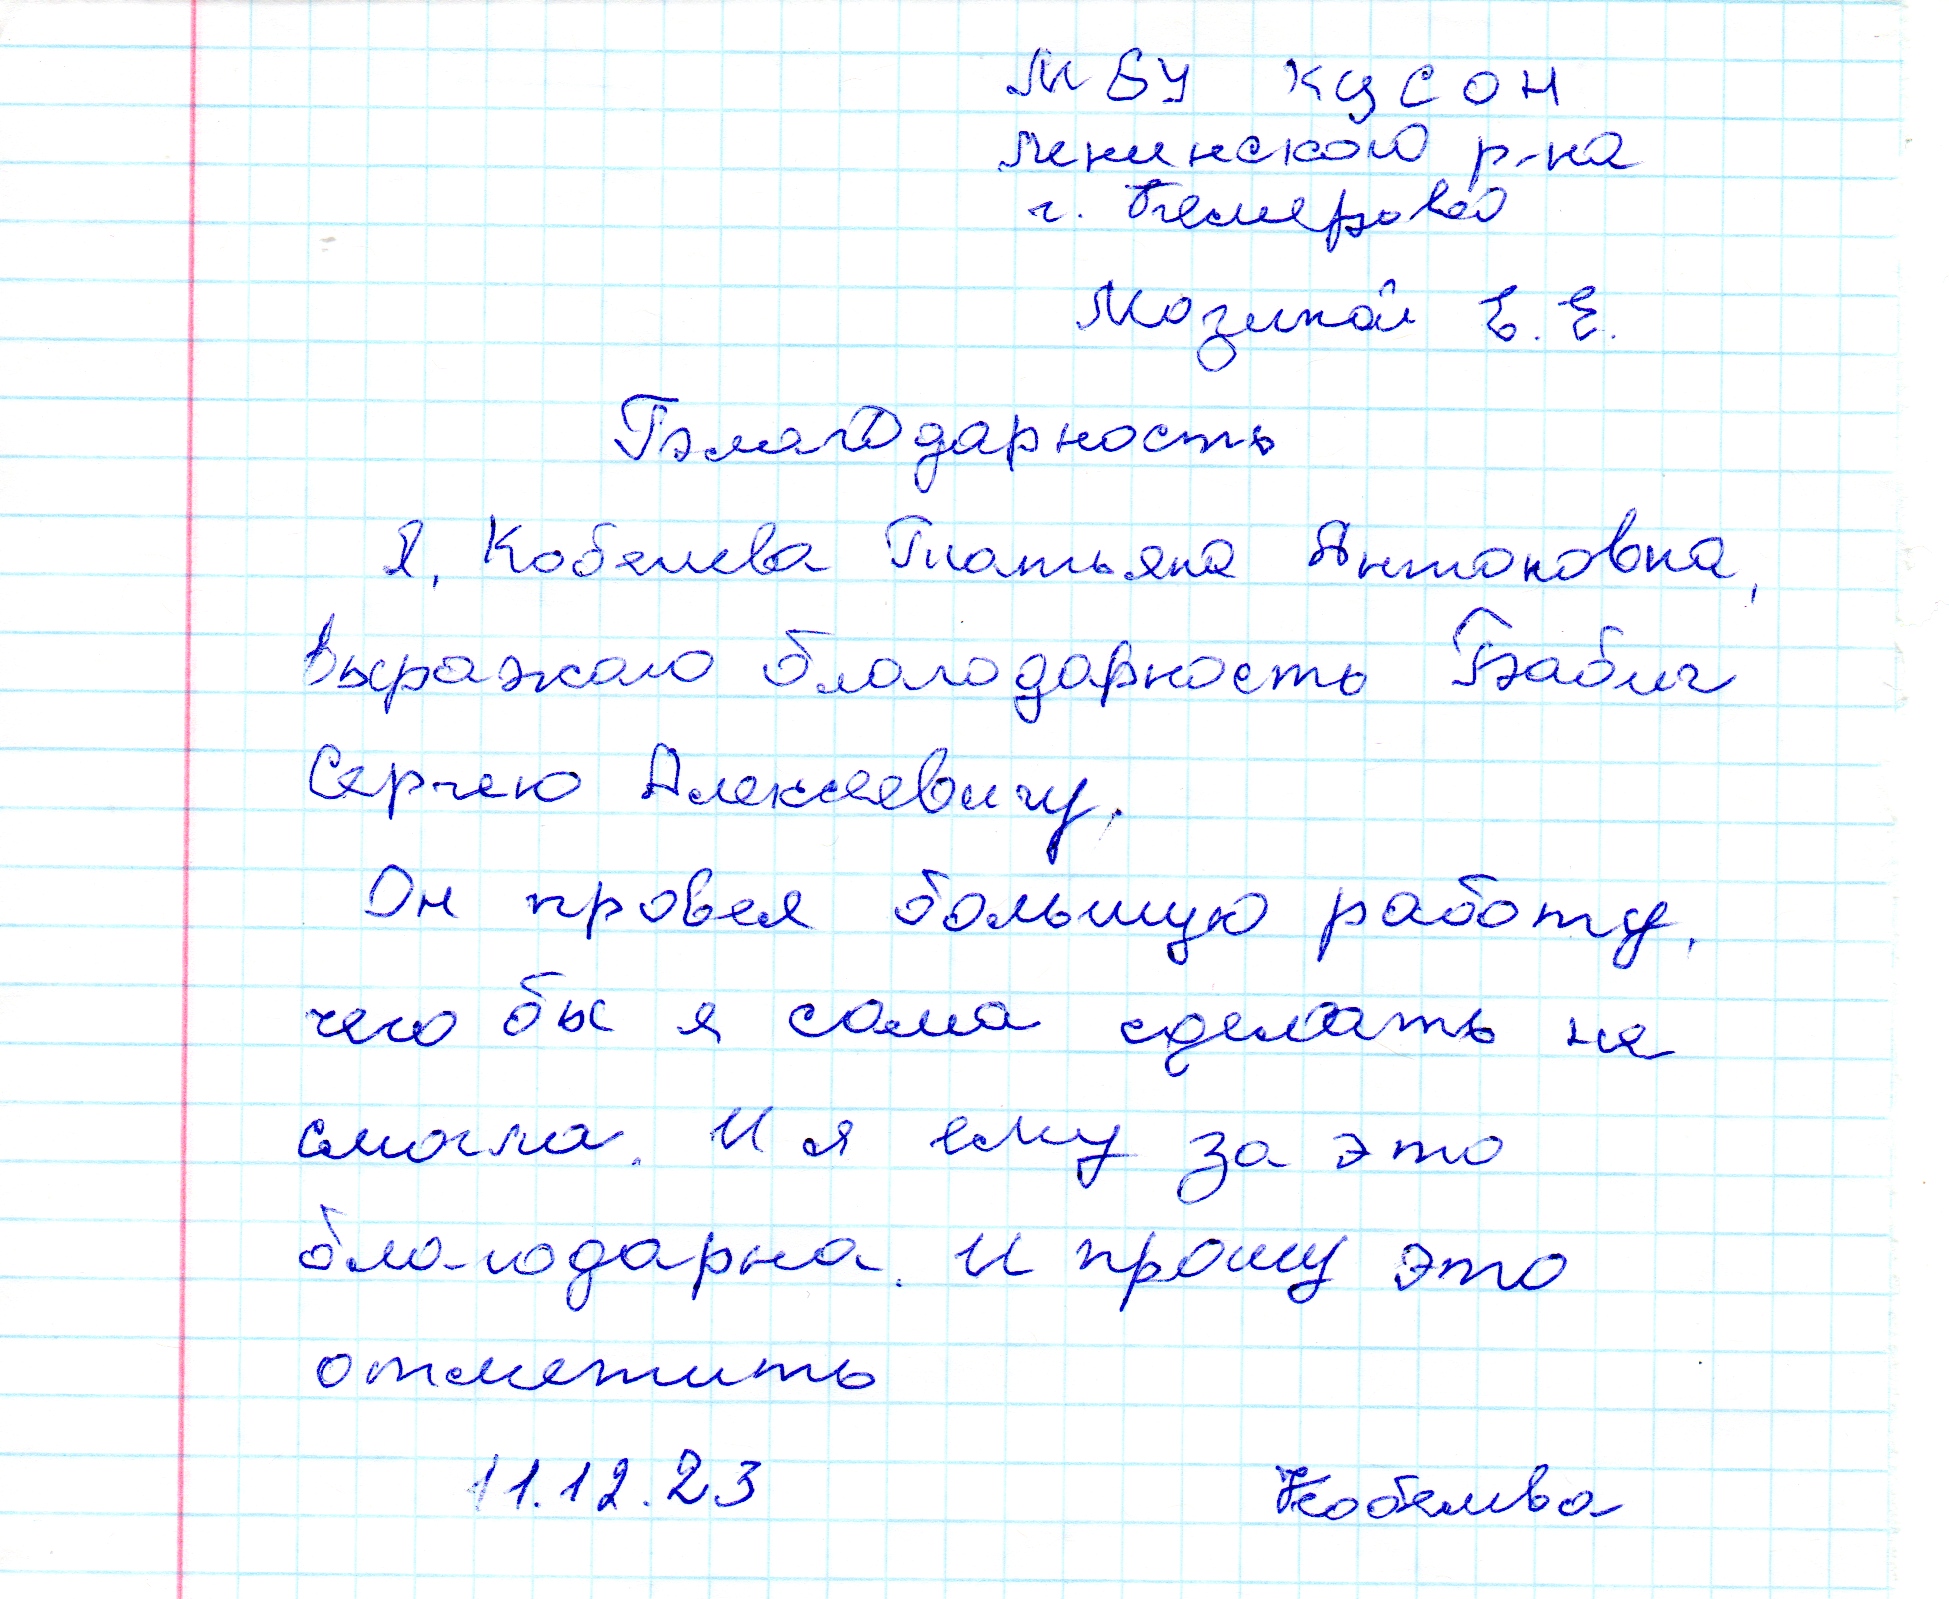 МБУ КЦСОН
Ленинского р-на
г. Кемерово
Мозикой Е.Е.
Благодарность
Я, Кобелева Татьяна Антоновна,
выражаю благодарность Бабич
Сергею Алексеевичу.
Он провел большую работу,
чего бы я сама сделать не
смогла. И я ему за это
благодарна. И прошу это
отметить
11.12.23 Кобелева